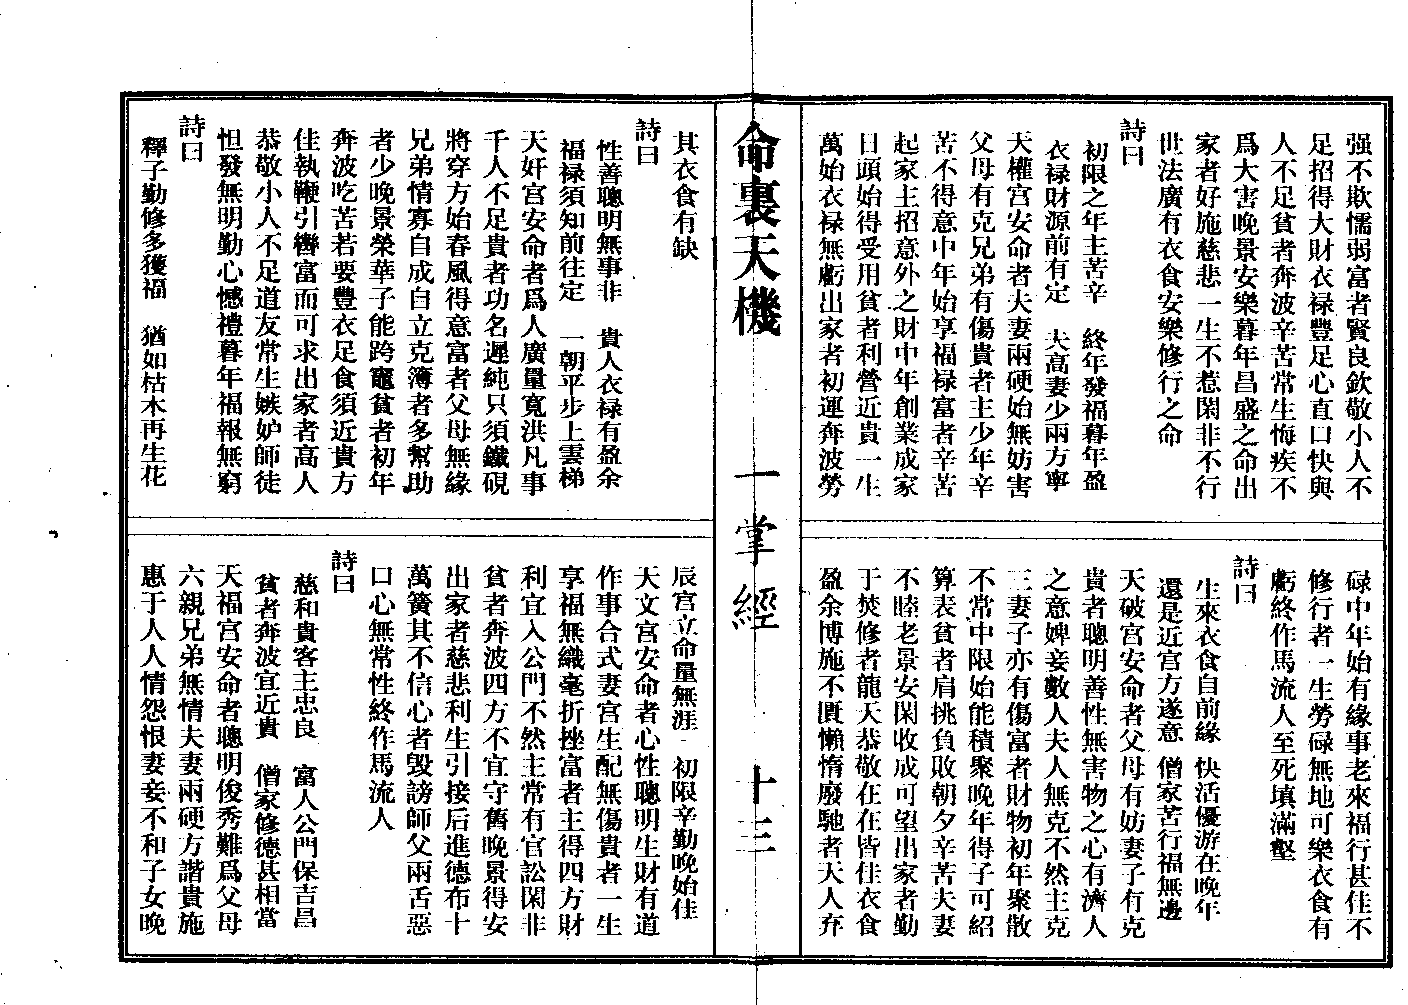 强不欺懦弱富者賢良欽敬小人不
足招得大財衣禄豐足心直口快與
人不足貧者奔波辛苦常生悔疾不
爲大害晚景安樂暮年昌盛之命出
家者好施慈悲一生不惹閑非不行
世法廣有衣食安樂修行之命
詩曰
初限之年主苦辛　終年發福暮年盈
衣禄財源前有定　夫高妻少兩方寧
天權宫安命者夫妻兩硬始無妨害
父母有克兄弟有傷貴者主少年辛
苦不得意中年始享福禄富者辛苦
起家主招意外之財中年創業成家
日頭始得受用貧者利營近貴一生
萬始衣禄無虧出家者初運奔波勞
碌中年始有緣事老來福行甚佳不
修行者一生勞碌無地可樂衣食有
虧終作馬流人至死填滿壑
詩曰
生來衣食自前緣　快活優游在晚年
還是近宫方遂意　僧家苦行福無邊
天破宫安命者父母有妨妻子有克
貴者聰明善性無害物之心有濟人
之意婢妾數人夫人無克不然主克
三妻子亦有傷富者財物初年聚散
不常中限始能積聚晚年得子可紹
算表貧者肩挑負敗朝夕辛苦夫妻
不睦老景安閑收成可望出家者勤
于焚修者龍天恭敬在在皆佳衣食
盈余博施不匱懶惰廢馳者天人弃
命裏天機　一掌經　十三
其衣食有缺
詩曰
性善聰明無事非　貴人衣禄有盈余
福禄須知前往定　一朝平步上雲梯
天奸宫安命者爲人廣量寬洪凡事
千人不足貴者功名遲純只須鐵硯
將穿方始春風得意富者父母無緣
兄弟情寡自成自立克簿者多幫助
者少晚景榮華子能跨竈貧者初年
奔波吃苦若要豐衣足食須近貴方
佳執鞭引轡富而可求出家者高人
恭敬小人不足道友常生嫉妒師徒
怛發無明勤心憾禮暮年福報無窮
詩曰
釋子勤修多獲福　猶如枯木再生花
辰宫立命量無涯　初限辛勤晚始佳
天文宫安命者心性聰明生財有道
作事合式妻宫生配無傷貴者一生
享福無纖毫折挫富者主得四方財
利宜入公門不然主常有官訟閑非
貧者奔波四方不宜守舊晚景得安
出家者慈悲利生引接后進德布十
萬簧其不信心者毁謗師父兩舌惡
口心無常性終作馬流人
詩曰
慈和貴客主忠良　富人公門保吉昌
貧者奔波宜近貴　僧家修德甚相當
天福宫安命者聰明俊秀難爲父母
六親兄弟無情夫妻兩硬方諧貴施
惠于人人情怨恨妻妾不和子女晚